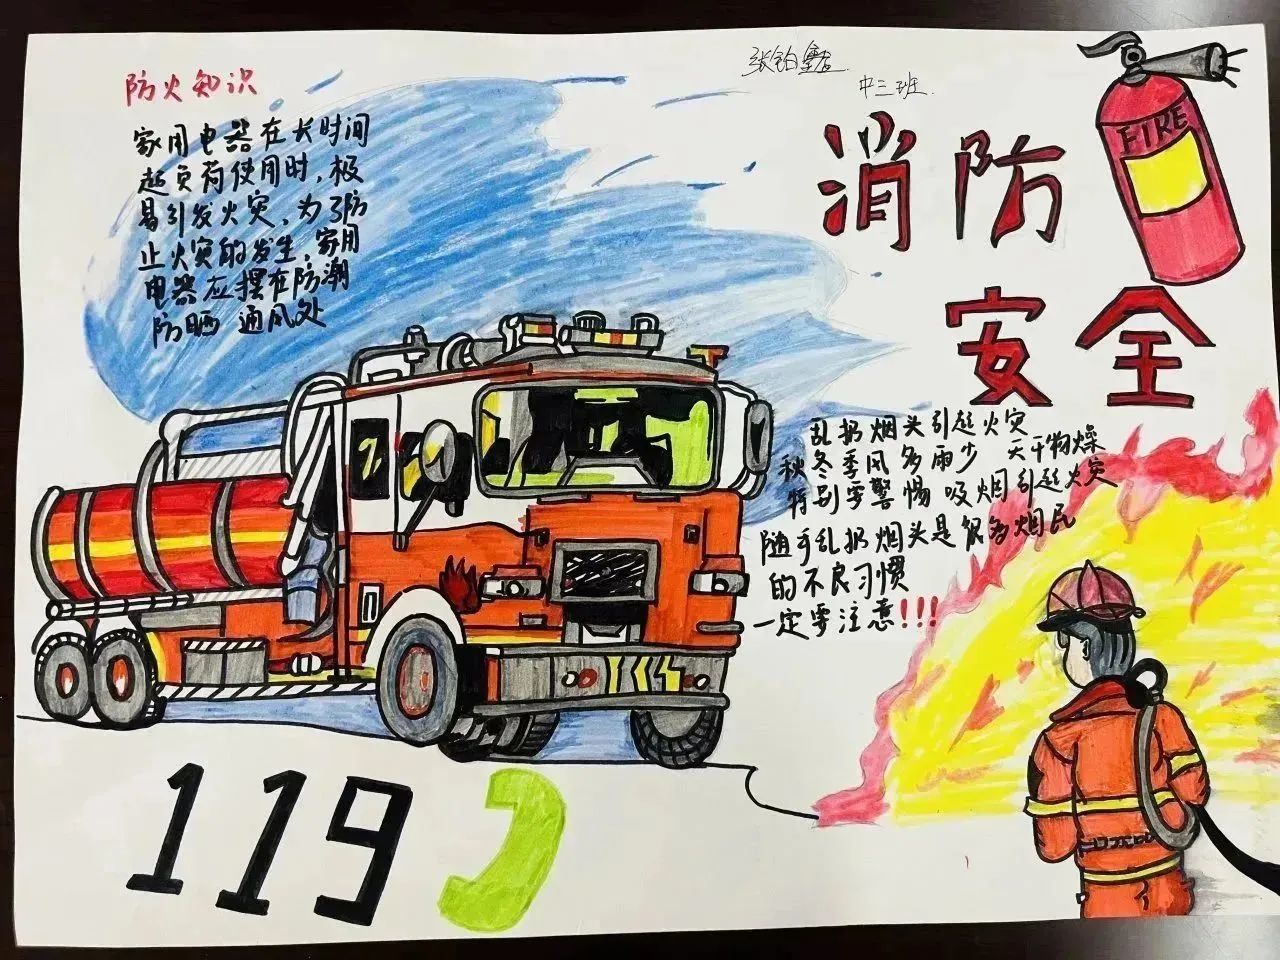 防火知识
家用电器在长时间
超负荷使用时，极
易引发火灾、为了防
止火灾的发生，家用
电器应摆在防潮
防晒 通风处
张铂
中三班.
消防
安全
FIRE
乱扔烟头引起火灾
秋冬季风多雨少 天干物燥
特别要警惕 吸烟引起火灾
随手乱扔烟头是很多烟民
的不良习惯
一定要注意!!!
119